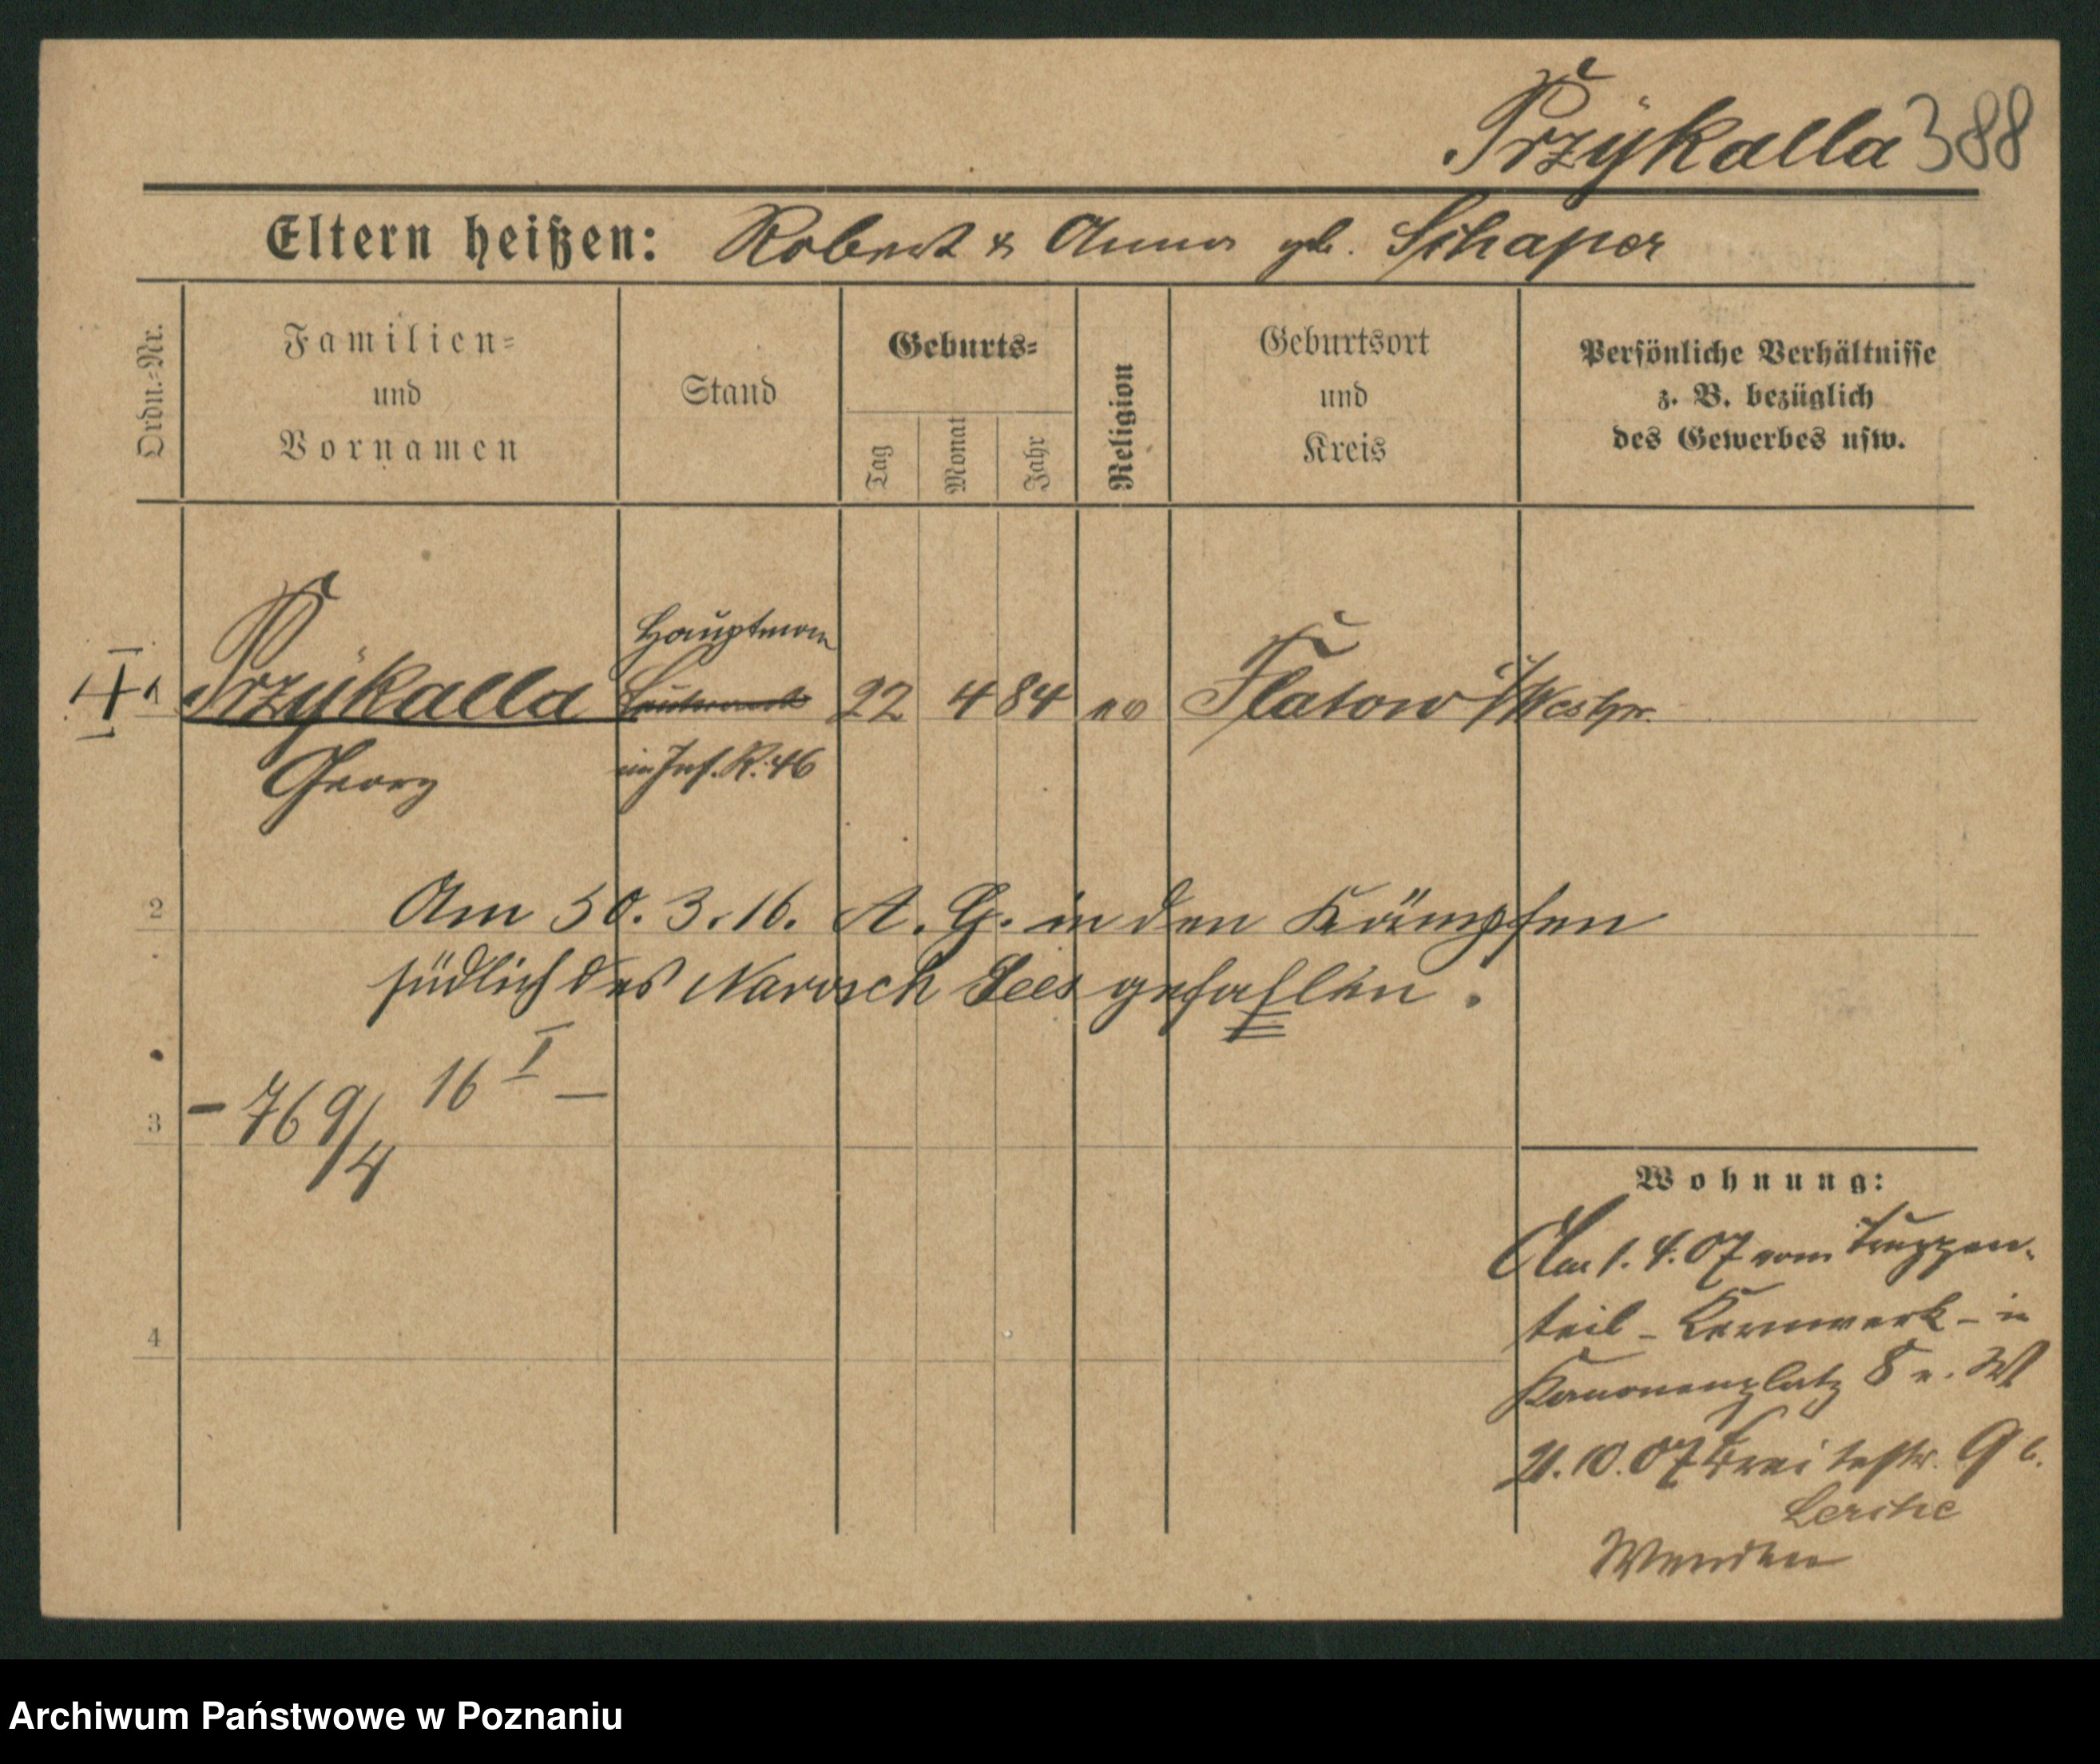 Przÿkalla 388
Eltern heißen: Robert & Anna geb. Schaper
Ordn.=Nr.
Familien=
und
Vornamen
Stand
Geburts=
Tag
Monat
Jahr
Religion
Geburtsort
und
Kreis
Persönliche Verhältnisse
z. B. bezüglich
des Gewerbes usw.
Hauptmann
1 Przÿkalla Leutnant 22 4 84 ev Flatow i/Westpr.
Georg im Inf. R. 46
2 Am 30. 3. 16. A. G. in den Kämpfen
südlich des Narosch Sees gefallen.
3 - 769/4 16 I -
4
Wohnung:
Am 1. 4. 07 vom Truppen-
teil - Kernwerk - in
Kanonenplatz 8 v. W
21. 10. 07 Breitestr. 9 b.
Lerche
Wenden
Archiwum Państwowe w Poznaniu